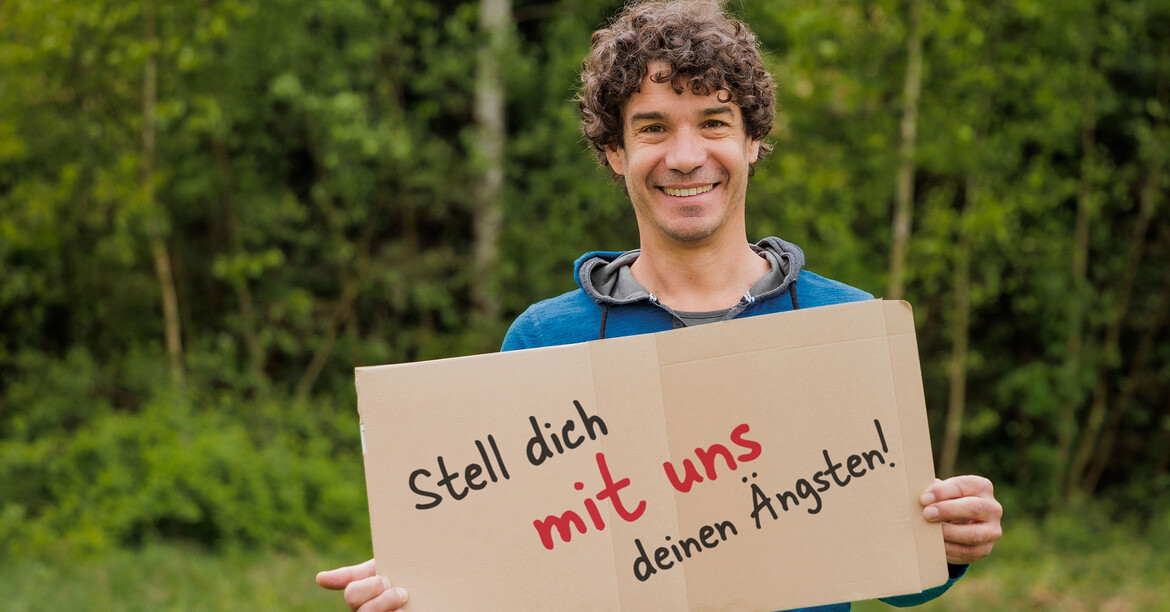 Stell dich
mit uns
deinen Ängsten!